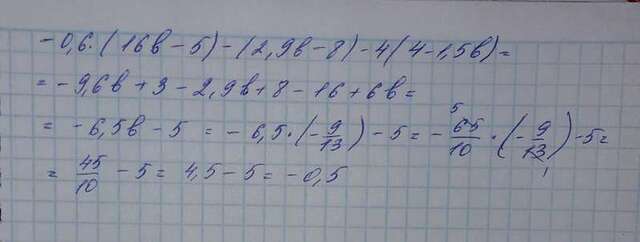 -0,6·(16в-5)-(2,9в-8)-4(4-1,5в)=
= -9,6в+3-2,9в+8-16+6в=
= -6,5в-5 = -6,5·(-9/13)-5 = -65/10·(-9/13)-5=
= 45/10 - 5 = 4,5-5 = -0,5